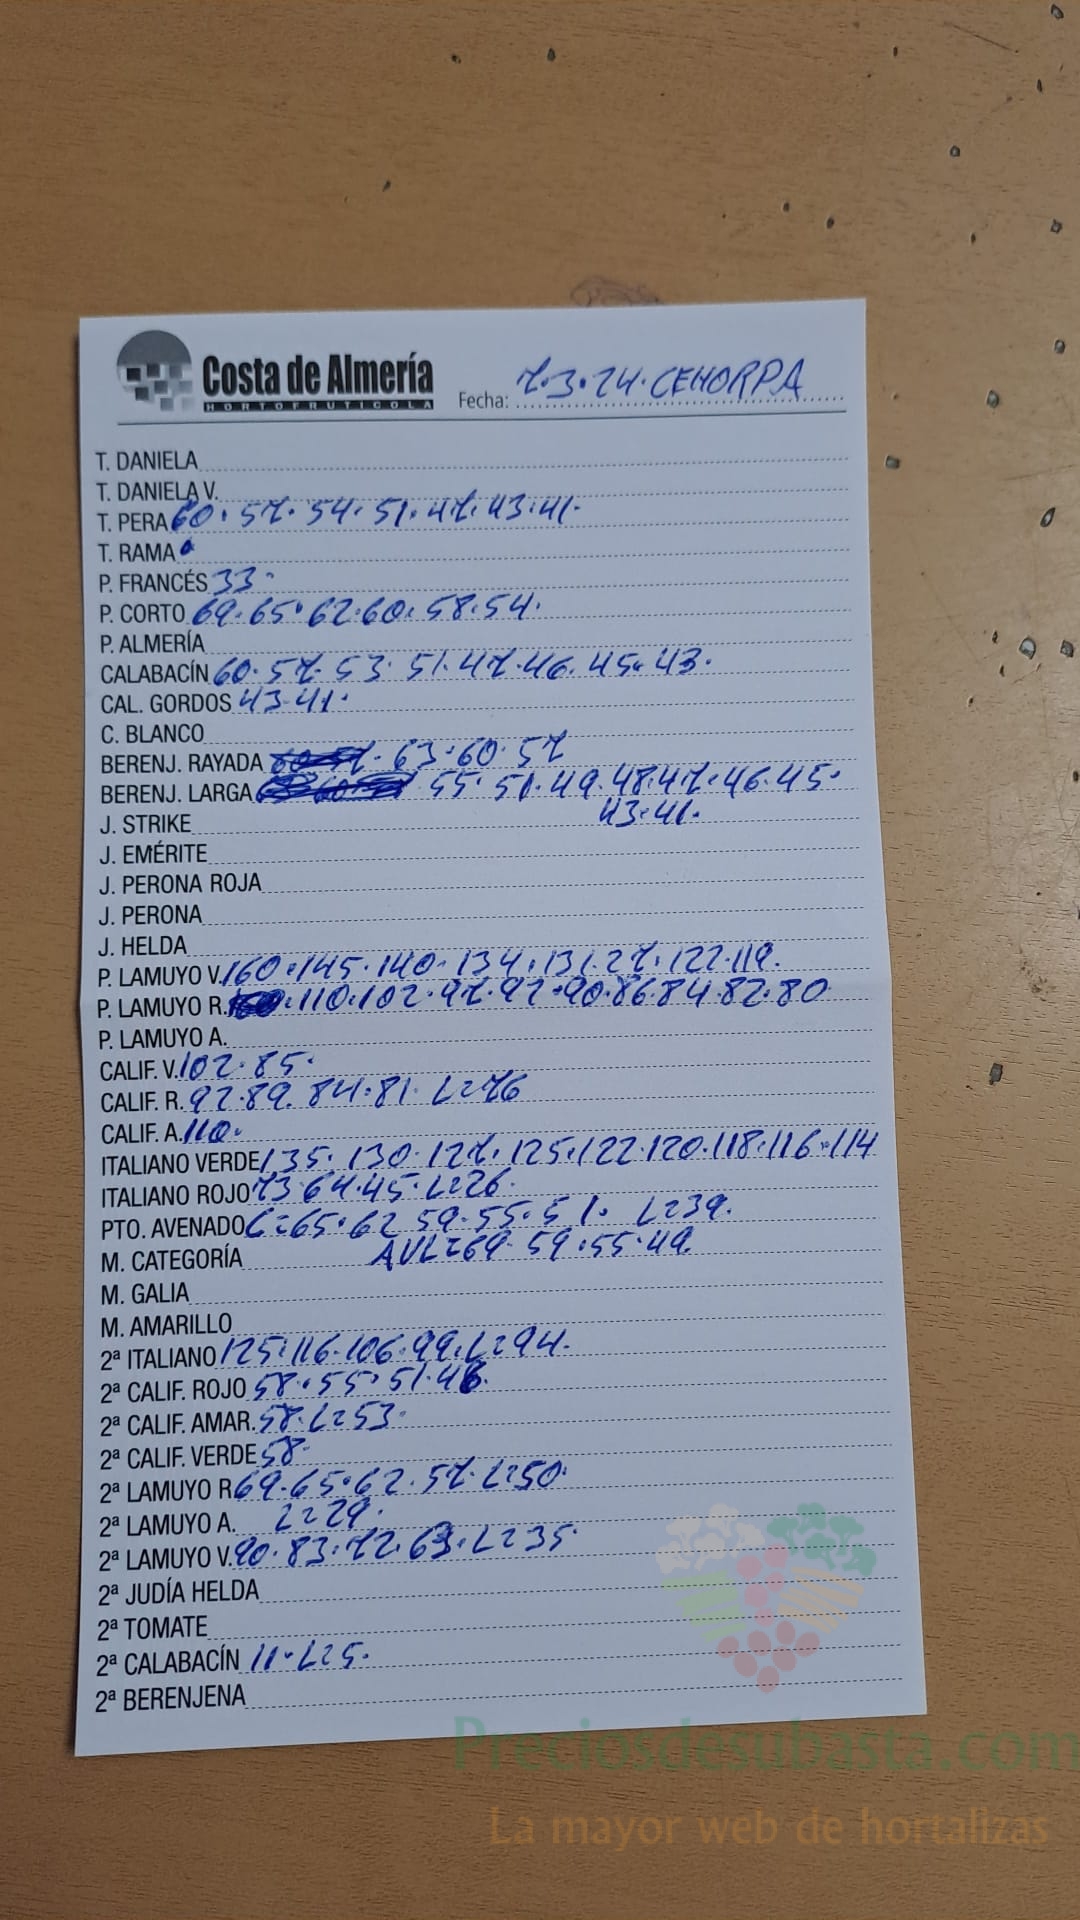 Costa de Almería
HORTOFRUTICOLA
Fecha: 7.3.24.CEHORPA
T. DANIELA
T. DANIELA V.
T. PERA 60.57.54.51.47.43.41.
T. RAMA
P. FRANCÉS 33.
P. CORTO 69.65.62.60.58.54.
P. ALMERÍA
CALABACÍN 60.57.53.51.47.46.45.43.
CAL. GORDOS 43.41.
C. BLANCO
BERENJ. RAYADA 63.60.57
BERENJ. LARGA 55.51.49.48.47.46.45.
43.41.
J. STRIKE
J. EMÉRITE
J. PERONA ROJA
J. PERONA
J. HELDA
P. LAMUYO V. 160.145.140.134.131.27.122.119.
P. LAMUYO R. 110.102.97.92.90.86.84.82.80
P. LAMUYO A.
CALIF. V. 102.85.
CALIF. R. 92.89.84.81. L=76
CALIF. A. 110.
ITALIANO VERDE 135.130.127.125.122.120.118.116.114
ITALIANO ROJO 73 64.45.L=26.
PTO. AVENADO C=65.62 59.55.51. L=39.
AVL=69.59.55.49.
M. CATEGORÍA
M. GALIA
M. AMARILLO
2ª ITALIANO 125.116.106.99.L=94.
2ª CALIF. ROJO 58.55.51.46.
2ª CALIF. AMAR. 58.L=53.
2ª CALIF. VERDE 58.
2ª LAMUYO R 69.65.62.57.L=50.
2ª LAMUYO A. L=29.
2ª LAMUYO V. 90.83.72.63.L=35.
2ª JUDÍA HELDA
2ª TOMATE
2ª CALABACÍN 11.L=5.
2ª BERENJENA
Preciosdesubasta.com
La mayor web de hortalizas